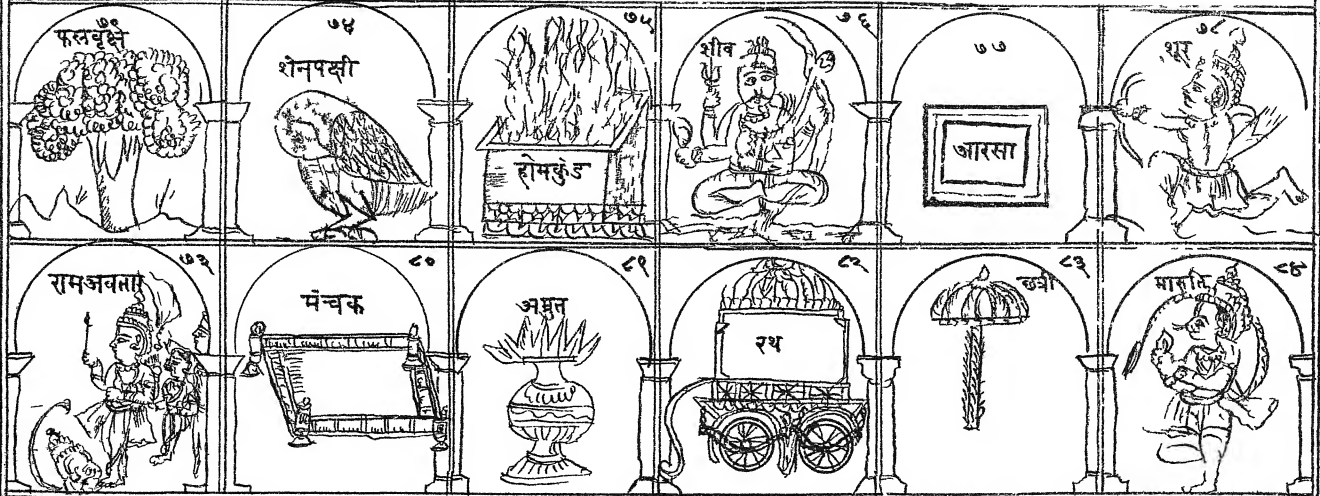 ७९
फलवृक्ष
७४
शेनपक्षी
७५
होमकुंड
७६
शीव
७७
आरसा
७८
शूर
७३
रामअवतार
८०
मंचक
८१
अमृत
८२
रथ
८३
छत्री
८४
मारुति